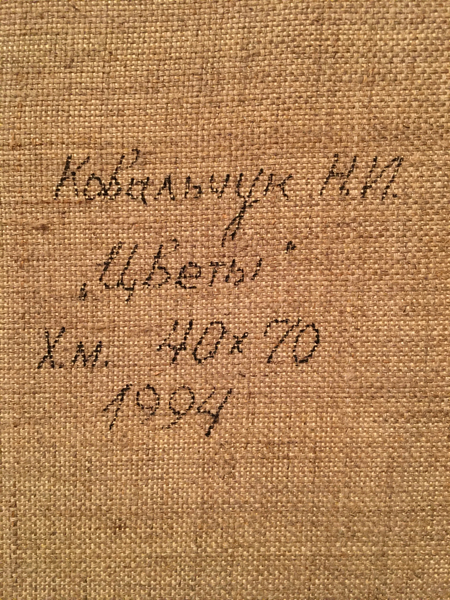 Ковальчук Н.И.
„Цветы"
Х.м. 40х70
1994